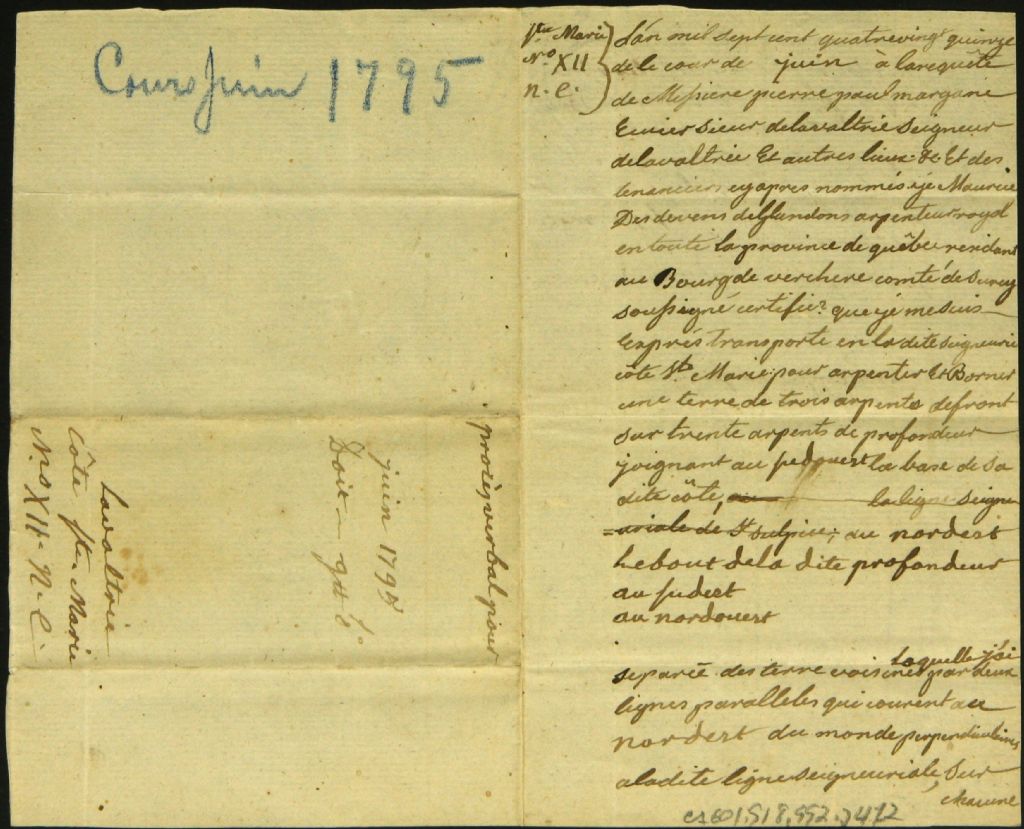 Cours Juin 1795
procès verbal pour
juin 1795
Doit
Lavaltrie
Côte Ste. Marie
No XII. N. C.
Ste Marie
No XII
n. C.
L'an mil sept cent quatrevingt quinze
de le cour de juin à larequete
de Messiere pierre paul margane
Ecuier Sieur delavaltrie Seigneur
delavaltrie Et autres lieux & Et des
tenanciers cy apres nommés, je Maurice
Desdevens delglandons arpenteur royal
en toute la province de quêbec residant
au Bourg de verchere comté de Surey
soussigné certifie que je me suis
Exprés transporte en la dite seigneurie
côte Ste Marie pour arpenter Et Borner
une terre de trois arpents defront
sur trente arpents de profondeur
joignant au sudouest la base de sa
dite côte, la ligne seigne
=uriale de St Sulpice; au nordest
le bout dela dite profondeur
au sudest
au nordouest
laquelle j'ai
separcé des terre voisines par deux
lignes paralleles qui courent au
nordest du monde perpendiculaires
aladite ligne seigneuriale, Sur
chacune
CA601,S18,SS2,D472